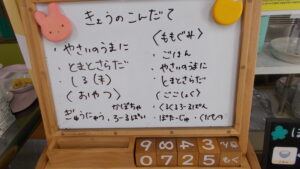 きょうのこんだて
・やさいのうまに
・とまとさらだ
・しる(末)
〈おやつ〉
かぼちゃ
ぎゅうにゅう、ろーるぱん
〈ももぐみ〉
・ごはん
・やさいのうまに
・とまとさらだ
〈ごごしょく〉
・くるくるろーるぱん
・ぽたーじゅ・くだもの
9 8 4 3
0 7 2 5 もく